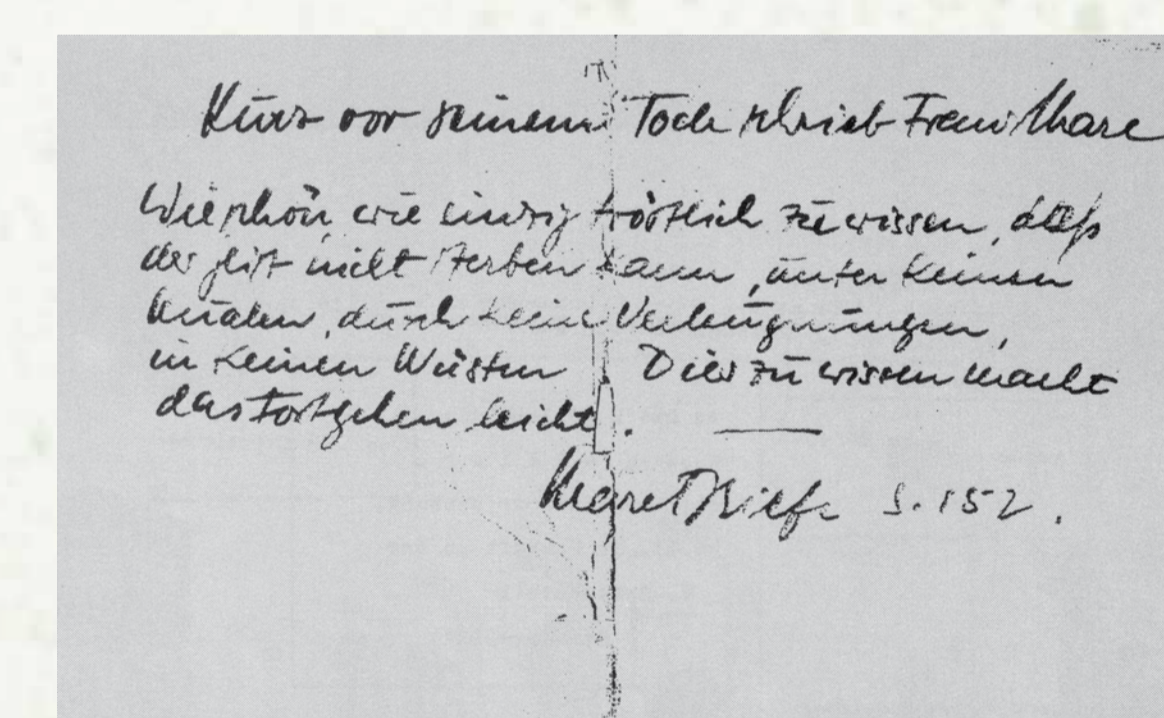 Kurz vor seinem Tode schrieb Franz Marc
Wie schön, wie einzig tröstlich zu wissen, daß
der Geist nicht sterben kann, unter keinen
Qualen, durch keine Verleugnungen,
in keinen Wüsten Dies zu wissen macht
das Fortgehen leicht.
Marc Briefe S. 152.